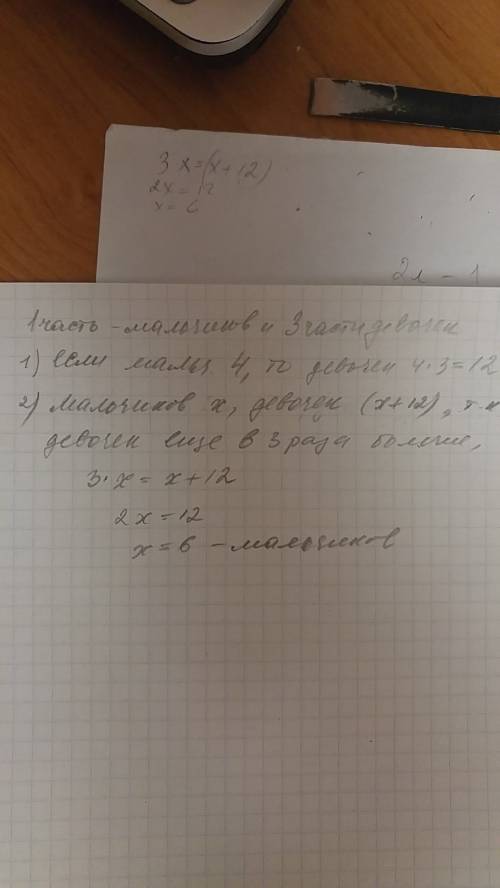 3x=(x+12)
2x=12
x=6
2л - 1
1 часть - мальчиков и 3 части девочек
1) если мальч 4, то девочек 4·3=12
2) мальчиков x, девочек (x+12), т.к
девочек еще в 3 раза больше,
3·x = x+12
2x=12
x=6 - мальчиков